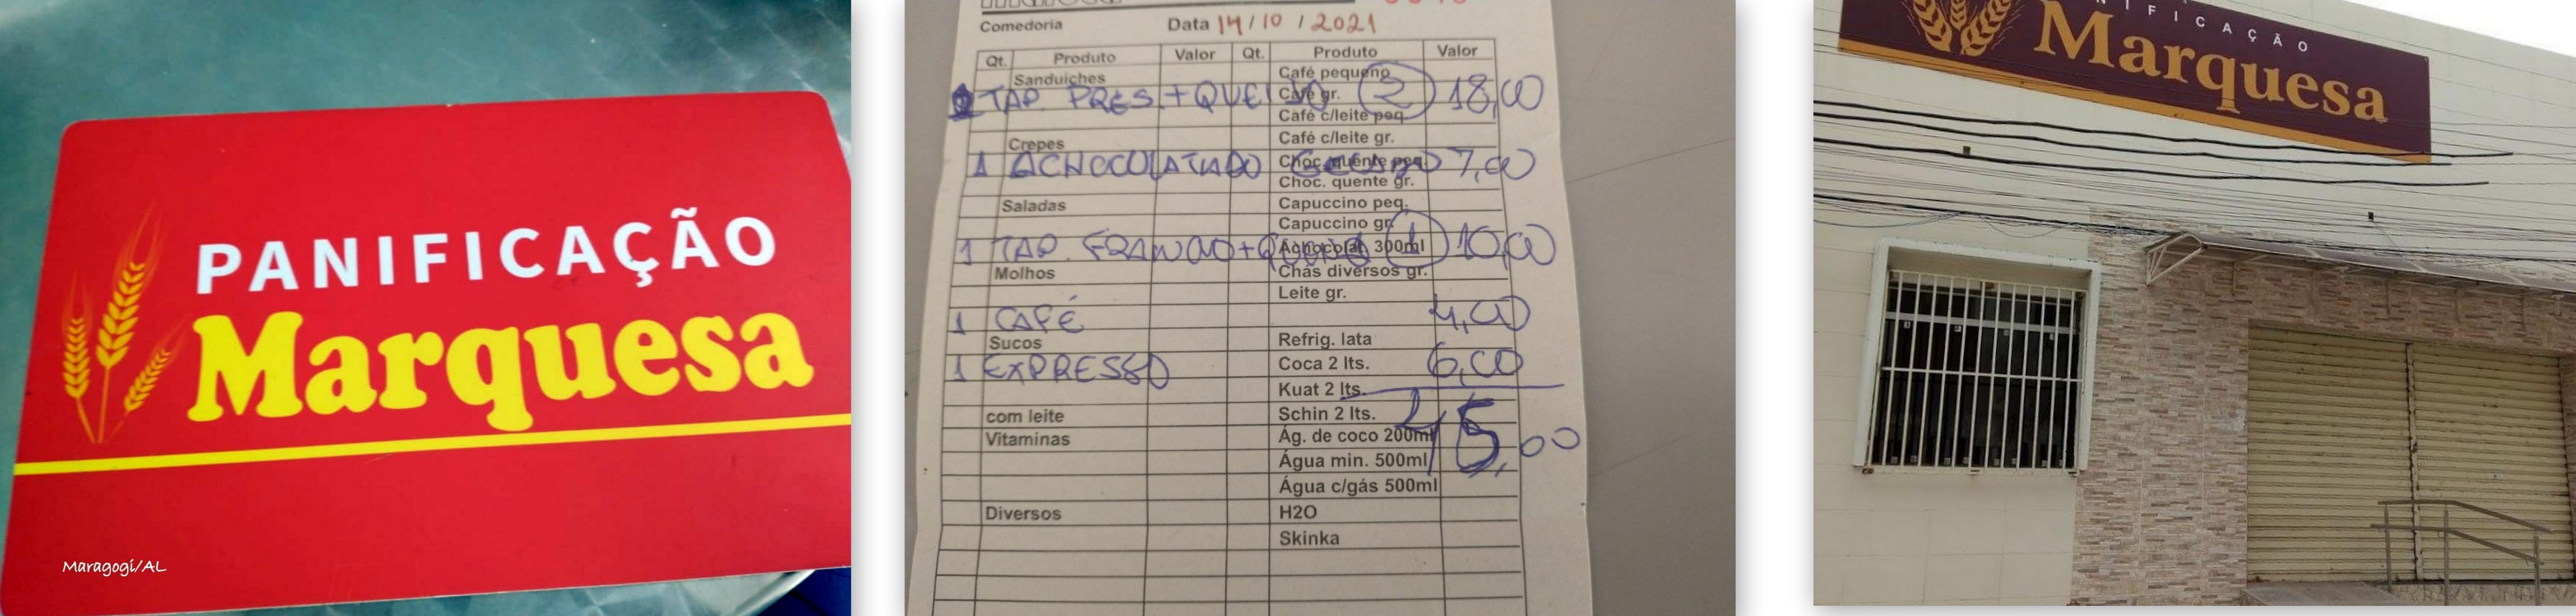 PANIFICAÇÃO
Marquesa
Maragogi/AL
Comedoria Data 14/10/2021
Qt. Produto Valor Qt. Produto Valor
Sanduiches Café pequeno
TAP PRES.+QUEIJO Café gr. 2 18,00
Café c/leite peq.
Crepes Café c/leite gr.
1 ACHOCOLATADO Choc. quente peq. 7,00
Choc. quente gr.
Saladas Capuccino peq.
Capuccino gr.
1 TAP. FRANGO+QUEIJO Achocolat. 300ml 1 10,00
Molhos Chás diversos gr.
Leite gr.
1 CAFÉ 4,00
Sucos Refrig. lata
1 EXPRESSO Coca 2 lts. 6,00
Kuat 2 lts.
com leite Schin 2 lts.
Vitaminas Ág. de coco 200ml 45,00
Água min. 500ml
Água c/gás 500ml
Diversos H2O
Skinka
Marquesa